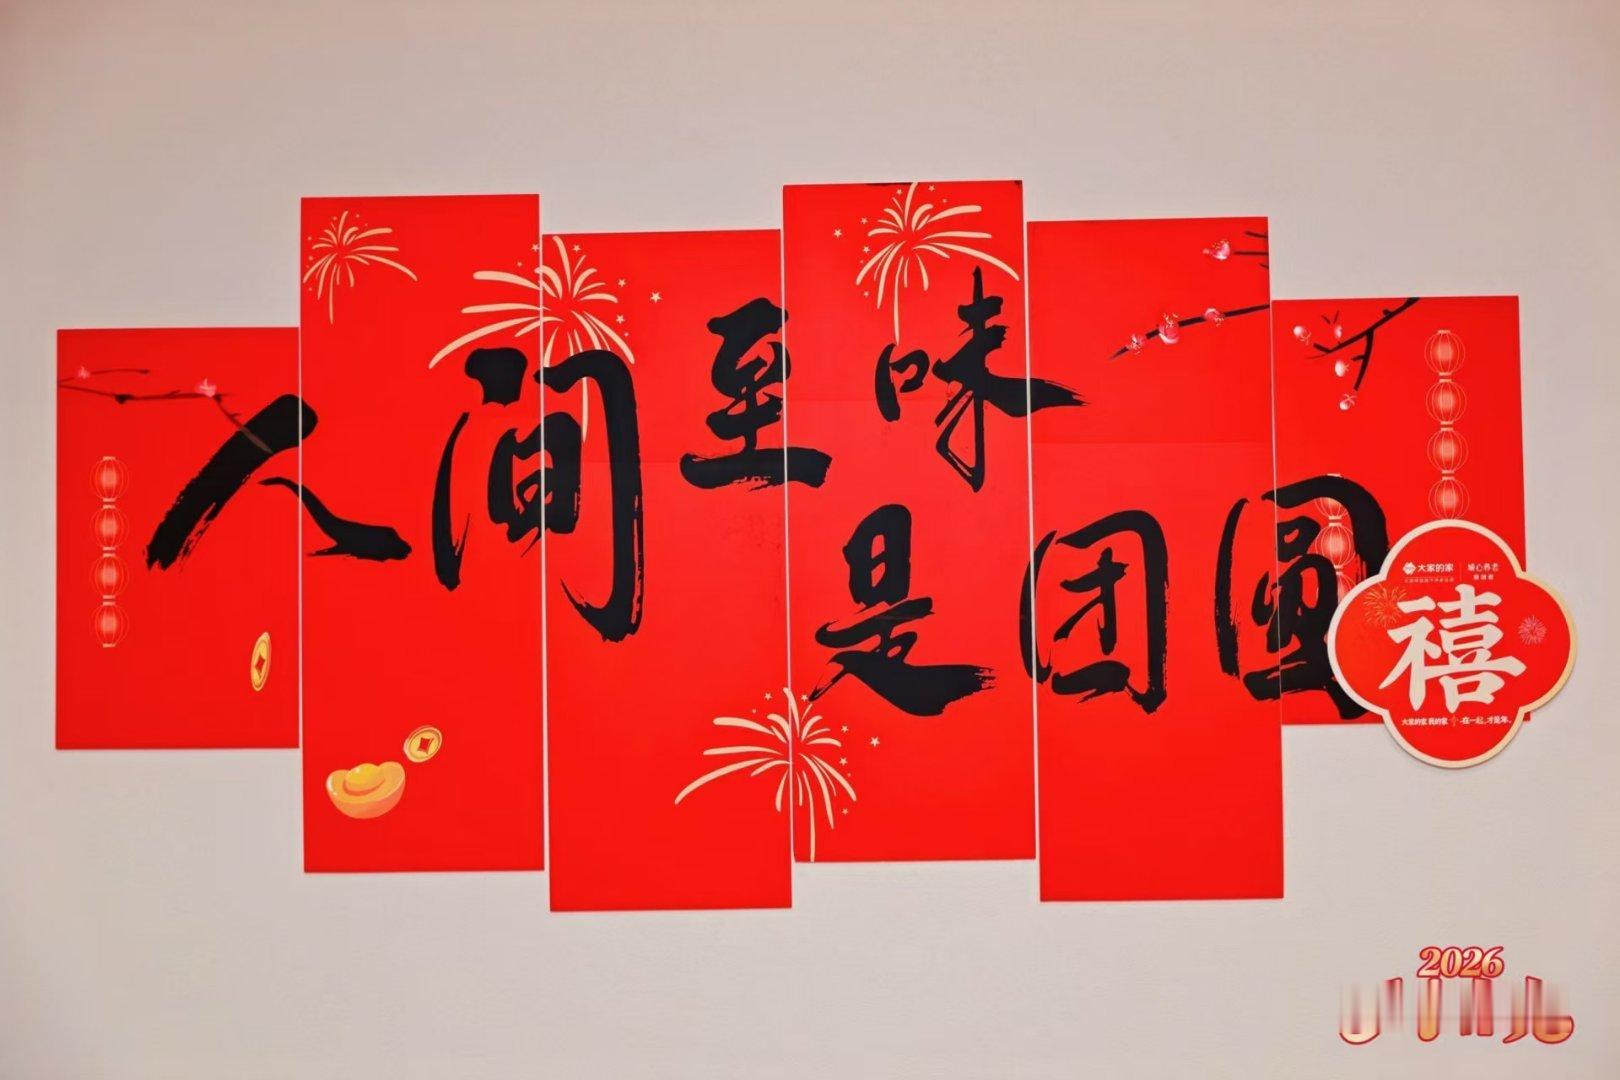 人间至味
是团圆
大家的家
暖心养老
禧
大家的家 我的家
在一起，才是年。
2026